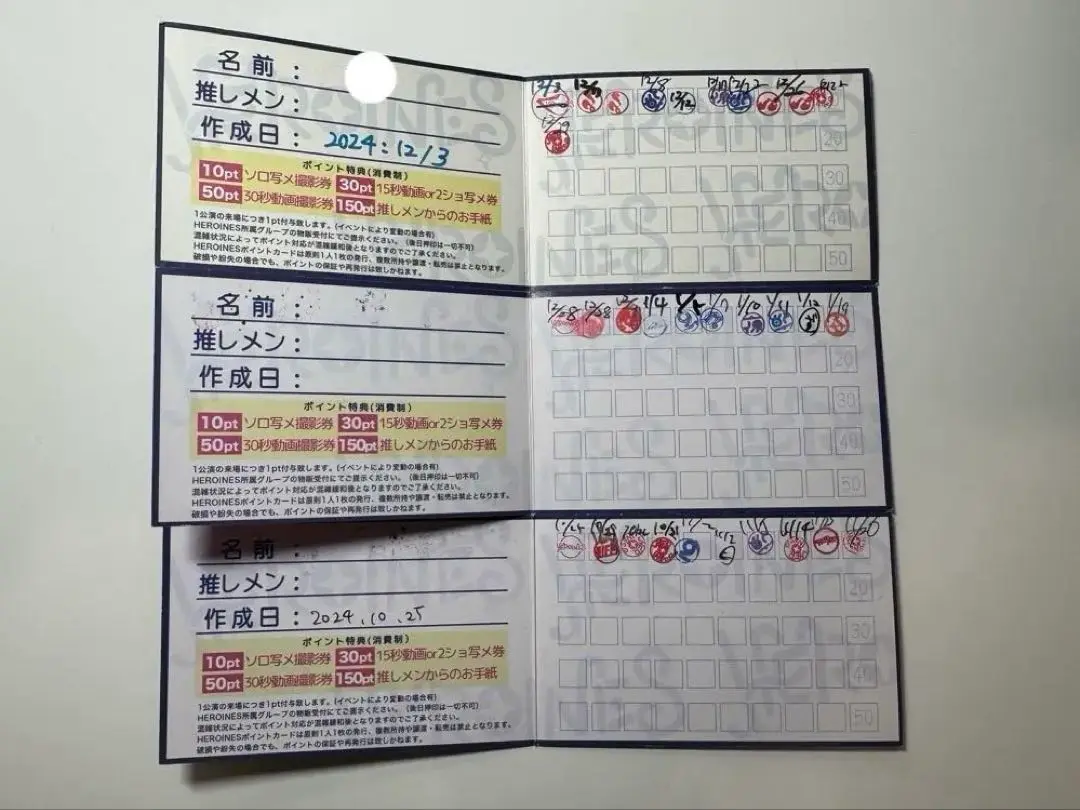 名前：
推しメン：
作成日： 2024：12/3
ポイント特典(消費制)
10pt ソロ写メ撮影券 30pt 15秒動画or2ショ写メ券
50pt 30秒動画撮影券 150pt 推しメンからのお手紙
1公演の来場につき1pt付与致します。(イベントにより変動の場合有)
HEROINES所属グループの物販受付にてご提示ください。(後日押印は一切不可)
混雑状況によってポイント対応が混雑緩和後となりますのでご了承ください。
HEROINESポイントカードは原則1人1枚の発行、複数所持や譲渡・転売は禁止となります。
破損や紛失の場合でも、ポイントの保証や再発行は致しかねます。
12/3 12/8 12/12 12/22 12/26
20
30
40
50
名前：
推しメン：
作成日：
ポイント特典(消費制)
10pt ソロ写メ撮影券 30pt 15秒動画or2ショ写メ券
50pt 30秒動画撮影券 150pt 推しメンからのお手紙
1公演の来場につき1pt付与致します。(イベントにより変動の場合有)
HEROINES所属グループの物販受付にてご提示ください。(後日押印は一切不可)
混雑状況によってポイント対応が混雑緩和後となりますのでご了承ください。
HEROINESポイントカードは原則1人1枚の発行、複数所持や譲渡・転売は禁止となります。
破損や紛失の場合でも、ポイントの保証や再発行は致しかねます。
12/28 12/28 1/4 1/7 1/10 1/11 1/12 1/19
20
30
40
50
名前：
推しメン：
作成日： 2024.10.25
ポイント特典(消費制)
10pt ソロ写メ撮影券 30pt 15秒動画or2ショ写メ券
50pt 30秒動画撮影券 150pt 推しメンからのお手紙
1公演の来場につき1pt付与致します。(イベントにより変動の場合有)
HEROINES所属グループの物販受付にてご提示ください。(後日押印は一切不可)
混雑状況によってポイント対応が混雑緩和後となりますのでご了承ください。
HEROINESポイントカードは原則1人1枚の発行、複数所持や譲渡・転売は禁止となります。
破損や紛失の場合でも、ポイントの保証や再発行は致しかねます。
11/2 11/14 11/20
20
30
40
50